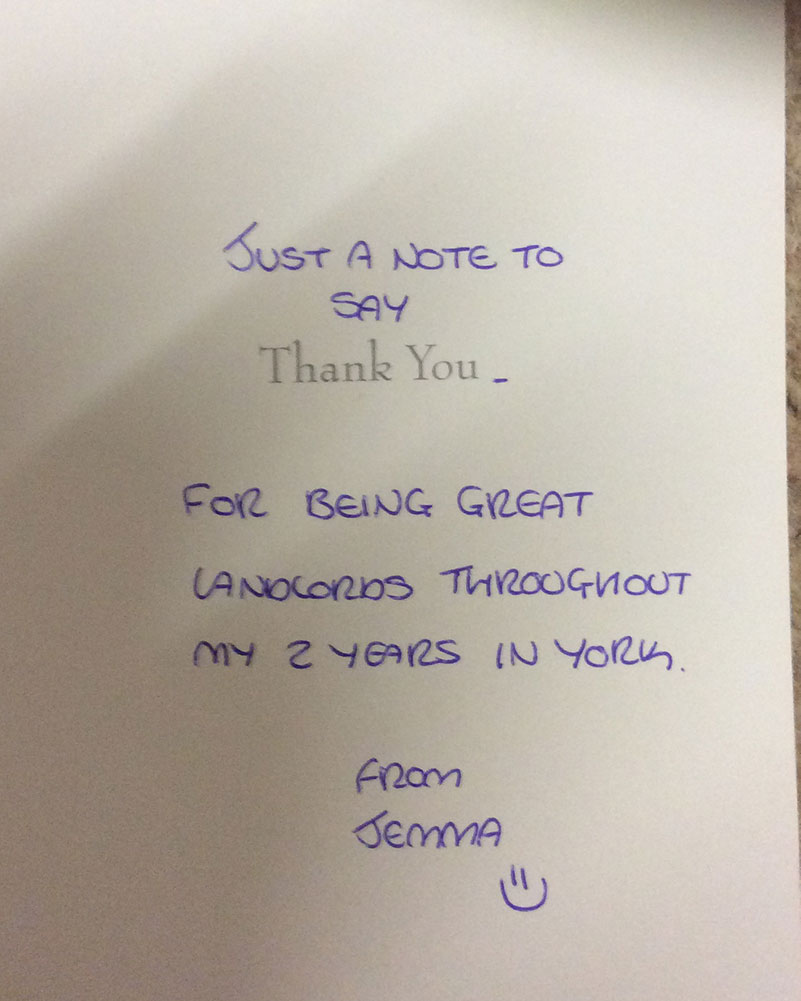 JUST A NOTE TO
SAY
Thank You -
FOR BEING GREAT
LANDLORDS THROUGHOUT
MY 2 YEARS IN YORK.
FROM
JEMMA